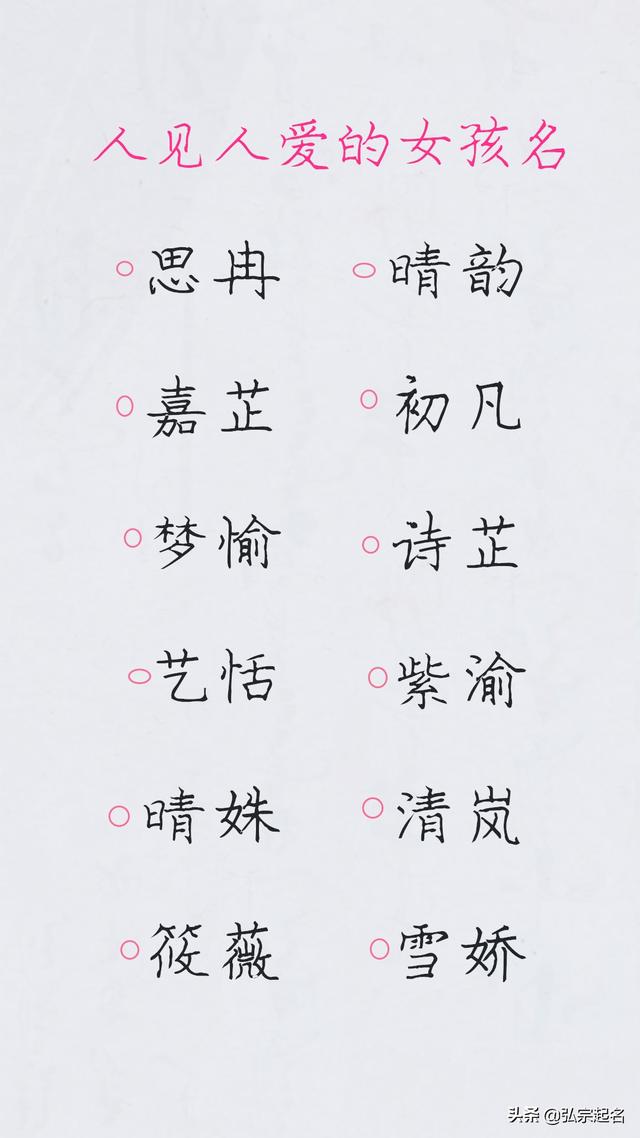 人见人爱的女孩名
思冉 晴韵
嘉芷 初凡
梦愉 诗芷
艺恬 紫渝
晴姝 清岚
筱薇 雪娇
头条 @弘宗起名